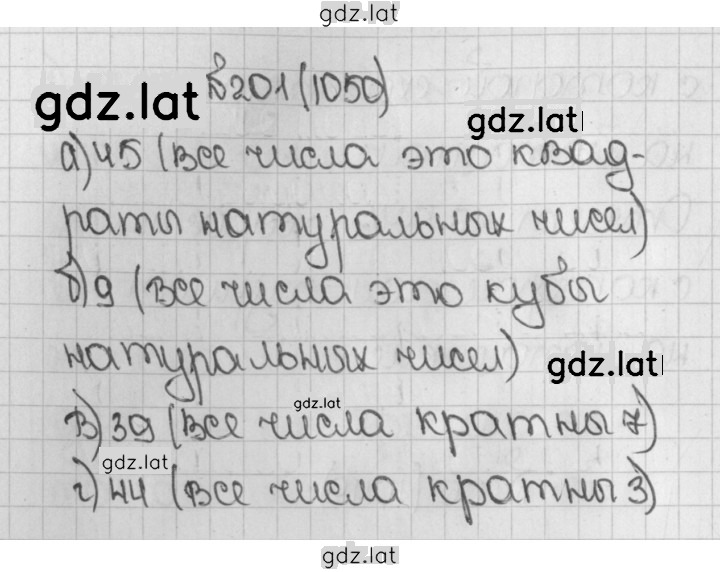 gdz.lat
№201(1050)
gdz.lat
gdz.lat
а) 45 (все числа это квад-
раты натуральных чисел)
б) 9 (все числа это кубы
натуральных чисел)
gdz.lat
gdz.lat
в) 39 (все числа кратны 7)
gdz.lat
г) 44 (все числа кратны 3)
gdz.lat